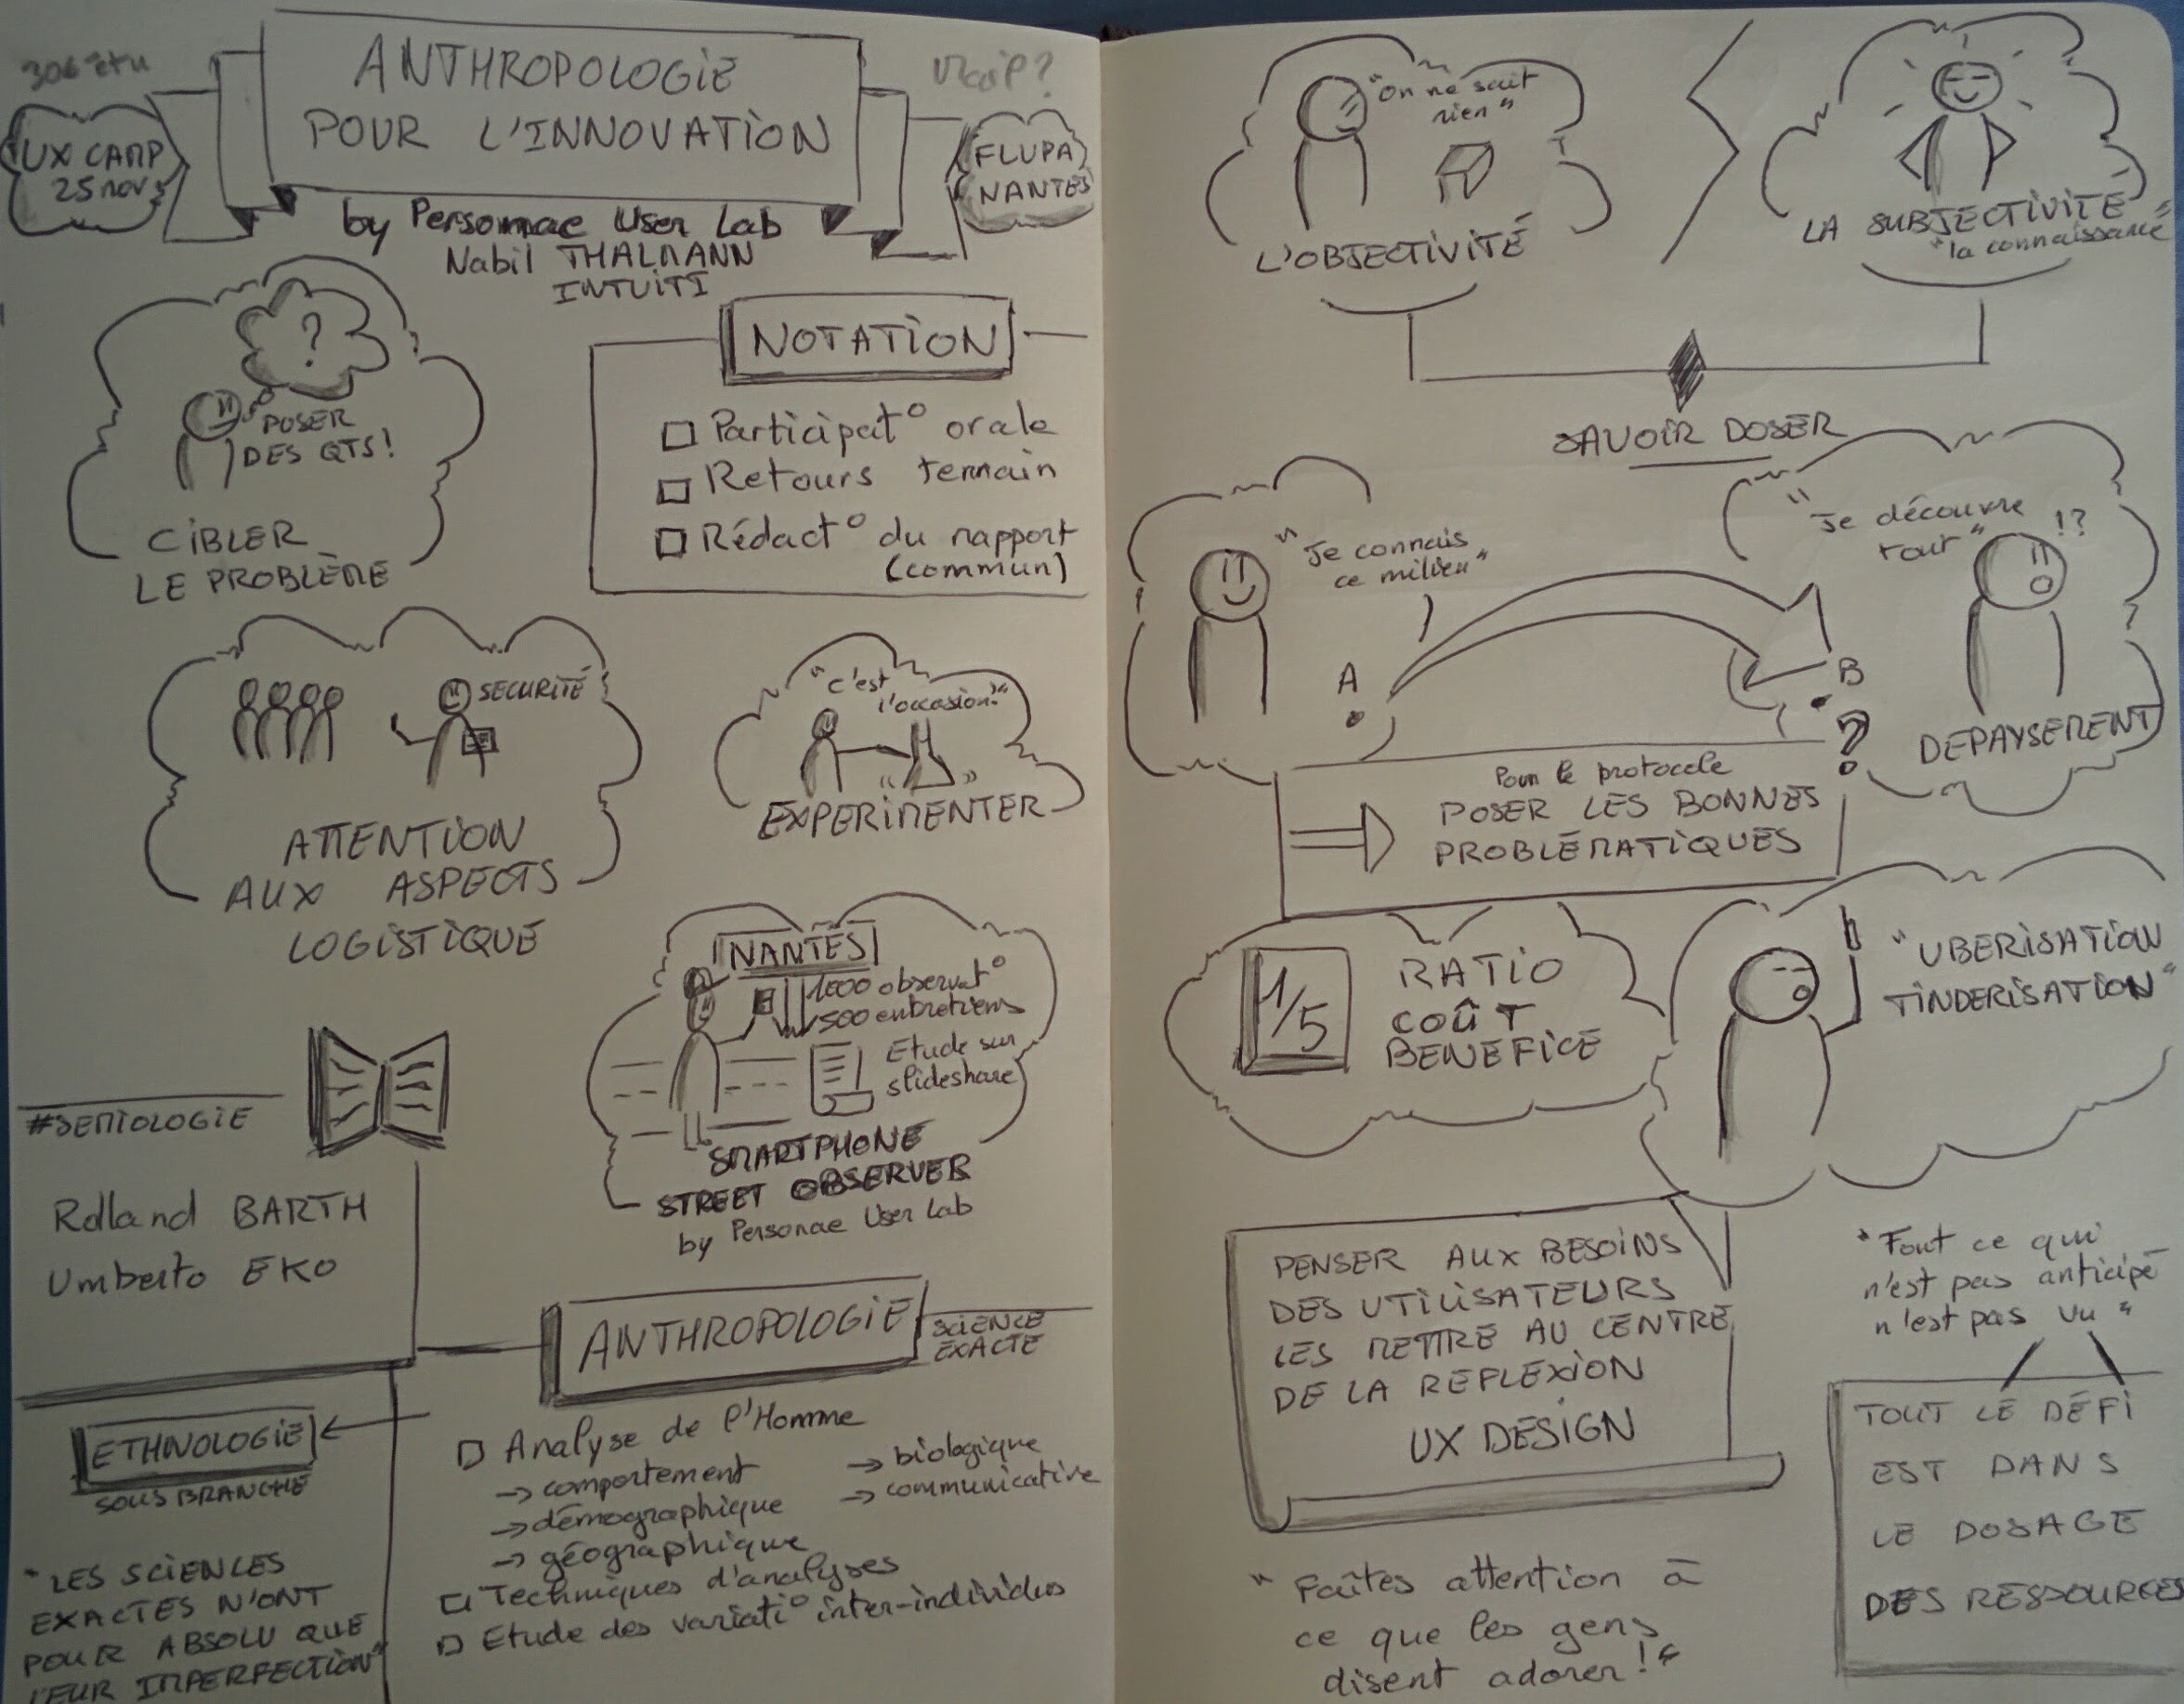 ANTHROPOLOGIE
POUR L'INNOVATION
UX CAMP
25 nov
FLUPA
NANTES
by Personae User Lab
Nabil THALMANN
INTUITI
?
POSER
DES QTS!
CIBLER
LE PROBLÈME
NOTATION
Participat° orale
Retours terrain
Rédact° du rapport
(commun)
SÉCURITÉ
ATTENTION
AUX ASPECTS
LOGISTIQUE
"c'est
l'occasion!"
EXPERIMENTER
NANTES
1000 observat°
500 entretiens
Etude sur
slideshare
SMARTPHONE
STREET OBSERVER
by Personae User Lab
#SEMIOLOGIE
Rolland BARTH
Umberto EKO
ANTHROPOLOGIE
SCIENCE
EXACTE
ETHNOLOGIE
SOUS BRANCHE
"LES SCIENCES
EXACTES N'ONT
POUR ABSOLU QUE
LEUR IMPERFECTION"
Analyse de l'Homme
→ comportement
→ démographique
→ géographique
→ biologique
→ communicative
Techniques d'analyses
Etude des variati° inter-individus
"On ne sait
rien"
L'OBJECTIVITÉ
LA SUBJECTIVITÉ
"la connaissance"
SAVOIR DOSER
"Je connais
ce milieu"
"Je découvre
tout"
!?
A
B
?
DEPAYSEMENT
Pour le protocole
POSER LES BONNES
PROBLÉMATIQUES
1/5
RATIO
COÛT
BENEFICE
"UBERISATION
TINDERISATION"
PENSER AUX BESOINS
DES UTILISATEURS
LES METTRE AU CENTRE
DE LA REFLEXION
UX DESIGN
"Tout ce qui
n'est pas anticipé
n'est pas vu"
TOUT LE DÉFI
EST DANS
LE DOSAGE
DES RESSOURCES
"Faîtes attention à
ce que les gens
disent adorer!"